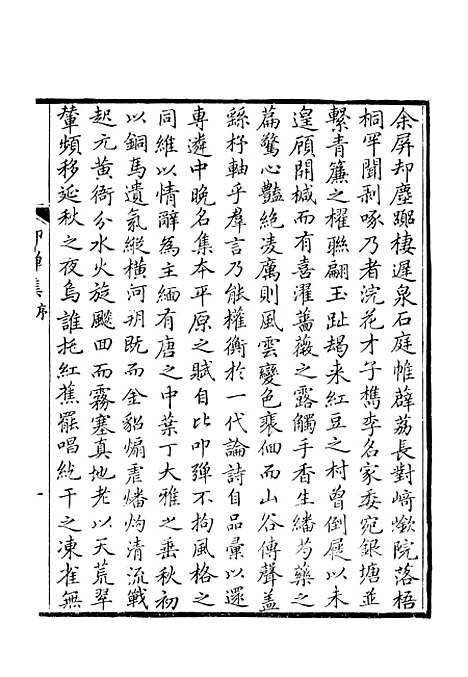 余屏却塵踪棲遲泉石庭帷薜荔長對﨑㠗院落梧
桐罕聞剥啄乃者浣花才子檇李名家委宛銀塘並
繫青簾之櫂聯翩玉趾朅来紅豆之村曾倒屣以未
遑顧開椷而有喜濯薔薇之露觸手香生繙芍藥之
篇驚心豔絶凌厲則風雲變色裵佪而山谷傳聲蓋
繇杼軸乎羣言乃能權衡於一代論詩自品彙以還
專遴中晚名集本平原之賦自比叩弹不拘風格之
同維以情辭爲主緬有唐之中葉丁大雅之垂秋初
以銅馬遺氛縱横河朔既而金貂煽虐燔灼清流戰
起元黄衙分水火旋飈囬而霧塞真地老以天荒翠
輦頻移延秋之夜烏誰托紅蕉罷唱紇干之凍雀無
叩弹集序
一